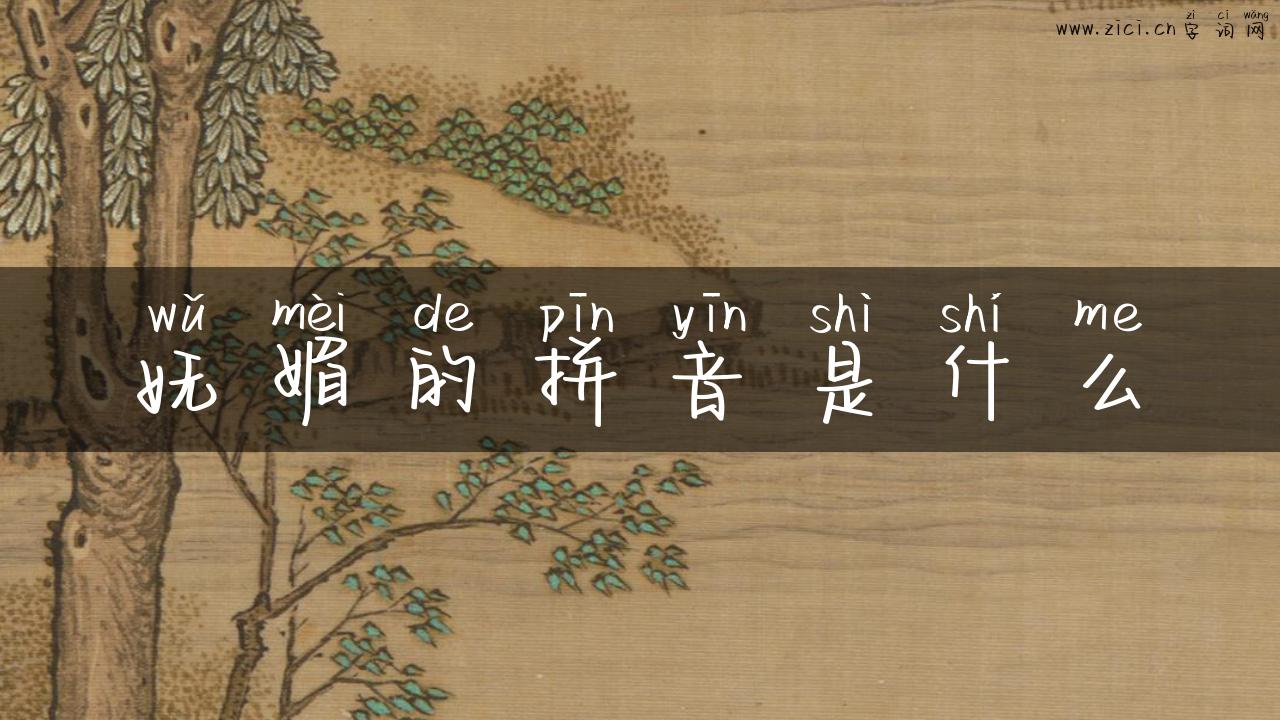 zì cí wǎng
www.zici.cn 字词网
wǔ mèi de pīn yīn shì shí me
妩媚的拼音是什么